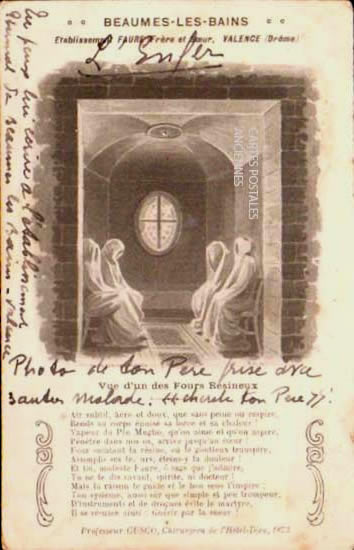 BEAUMES-LES-BAINS
Etablissement FAURE Frère et Sœur, VALENCE (Drôme)
L'Enfer
Tu peux lui écrire à l'établissement
thermal de Beaumes les Bains - Valence
CARTES POSTALES
ANCIENNES
Photo de ton Pere prise avec
Vue d'un des Fours Résineux
autres malade. cherche ton Pere
Air subtil, âcre et doux, que sans peine on respire,
Rends au corps épuisé sa force et sa chaleur !
Vapeur du Pin Mugho, qu'on aime et qu'on aspire,
Pénètre dans nos os, arrive jusqu'au cœur !
Four calmant la résine, où le patient transpire,
Assouplis ses nerfs, éteins la douleur !
Et toi, modeste Faure, ô sage que j'admire,
Tu ne te dis savant, spirite, ni docteur !
Mais la raison te guide et le bon sens t'inspire ;
Ton système, aussi sûr que simple et peu trompeur,
D'instruments et de drogues évite le martyre,
Il se résume ainsi : Guérir par la sueur !
Professeur GUSCO, Chirurgien de l'Hôtel-Dieu,